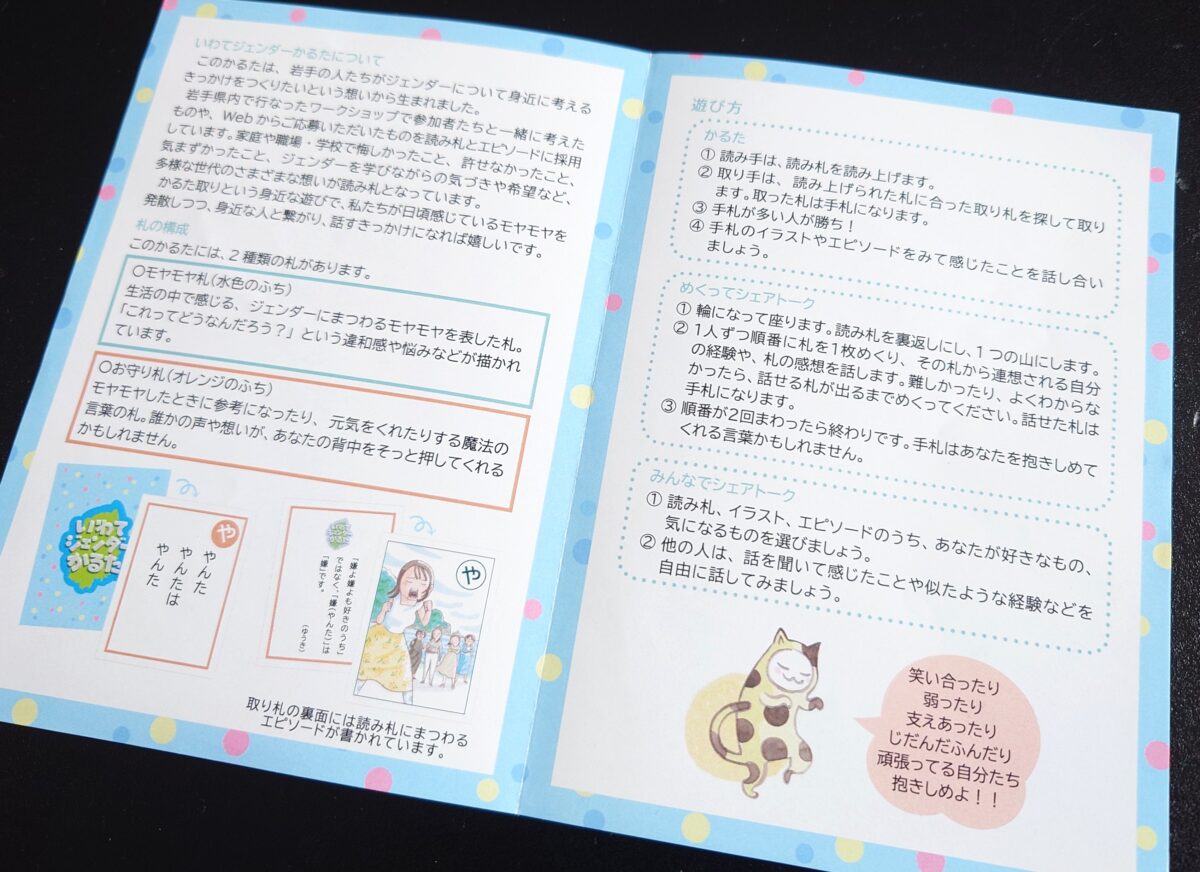 いわてジェンダーかるたについて
このかるたは、岩手の人たちがジェンダーについて身近に考える
きっかけをつくりたいという想いから生まれました。
岩手県内で行なったワークショップで参加者たちと一緒に考えた
ものや、Webからご応募いただいたものを読み札とエピソードに採用
しています。家庭や職場・学校で悔しかったこと、許せなかったこと、
気まずかったこと、ジェンダーを学びながらの気づきや希望など、
多様な世代のさまざまな想いが読み札となっています。
かるた取りという身近な遊びで、私たちが日頃感じているモヤモヤを
発散しつつ、身近な人と繋がり、話すきっかけになれば嬉しいです。
札の構成
このかるたには、2種類の札があります。
○モヤモヤ札(水色のふち)
生活の中で感じる、ジェンダーにまつわるモヤモヤを表した札。
「これってどうなんだろう?」という違和感や悩みなどが描かれ
ています。
○お守り札(オレンジのふち)
モヤモヤしたときに参考になったり、元気をくれたりする魔法の
言葉の札。誰かの声や想いが、あなたの背中をそっと押してくれる
かもしれません。
いわて
ジェンダー
かるた
や
やんた
やんたは
やんた
「嫌よ嫌よも好きのうち」
ではなく、「嫌(やんた)」は
「嫌」です。
(ゆうき)
や
取り札の裏面には読み札にまつわる
エピソードが書かれています。
遊び方
かるた
① 読み手は、読み札を読み上げます。
② 取り手は、読み上げられた札に合った取り札を探して取り
ます。取った札は手札になります。
③ 手札が多い人が勝ち!
④ 手札のイラストやエピソードをみて感じたことを話し合い
ましょう。
めくってシェアトーク
① 輪になって座ります。読み札を裏返しにし、1つの山にします。
② 1人ずつ順番に札を1枚めくり、その札から連想される自分
の経験や、札の感想を話します。難しかったり、よくわからな
かったら、話せる札が出るまでめくってください。話せた札は
手札になります。
③ 順番が2回まわったら終わりです。手札はあなたを抱きしめて
くれる言葉かもしれません。
みんなでシェアトーク
① 読み札、イラスト、エピソードのうち、あなたが好きなもの、
気になるものを選びましょう。
② 他の人は、話を聞いて感じたことや似たような経験などを
自由に話してみましょう。
笑い合ったり
弱ったり
支えあったり
じだんだふんだり
頑張ってる自分たち
抱きしめよ!!